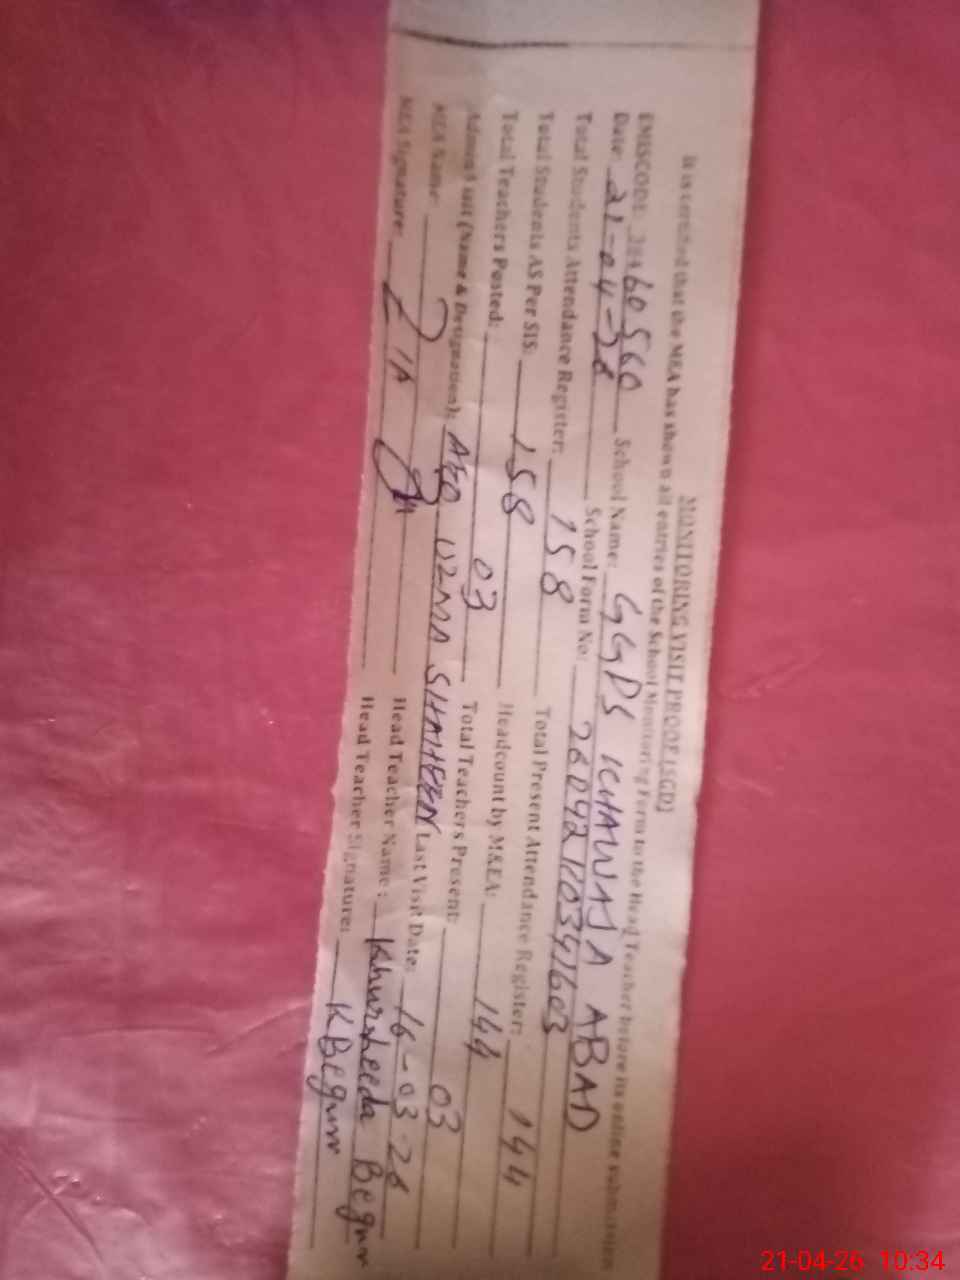 MONITORING VISIT PROOF (SGD)
It is certified that the MEA has shown all entries of the School Monitoring Form to the Head Teacher before its online submission
EMISCODE: 60560 School Name: GGPS KHAWAJA ABAD
Date: 21-04-26 School Form No:
Total Students Attendance Register: 158 Total Present Attendance Register: 144
Total Students AS Per SIS: 158 Headcount by M&EA: 144
Total Teachers Posted: 03 Total Teachers Present: 03
Admin Visit (Name & Designation): AEO UZMA SHAHEEN Last Visit Date: 16-03-26
MEA Name: ZIA Head Teacher Name: Khursheeda Begum
MEA Signature: Head Teacher Signature: K Begum
21-04-26 10:34